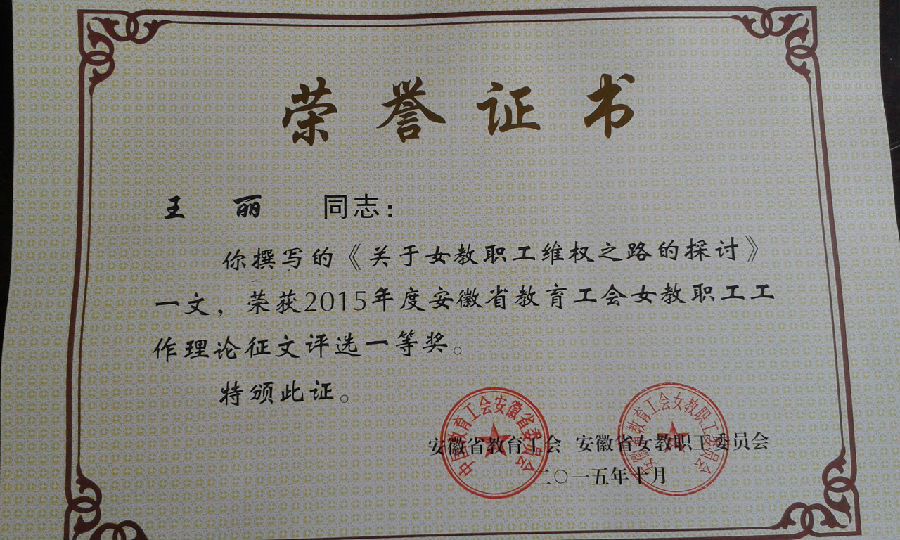 荣誉证书
王丽 同志：
你撰写的《关于女教职工维权之路的探讨》
一文，荣获2015年度安徽省教育工会女教职工工
作理论征文评选一等奖。
特颁此证。
中国教育工会安徽省委员会
安徽省教育工会女教职工委员会
安徽省教育工会 安徽省女教职工委员会
二〇一五年十月